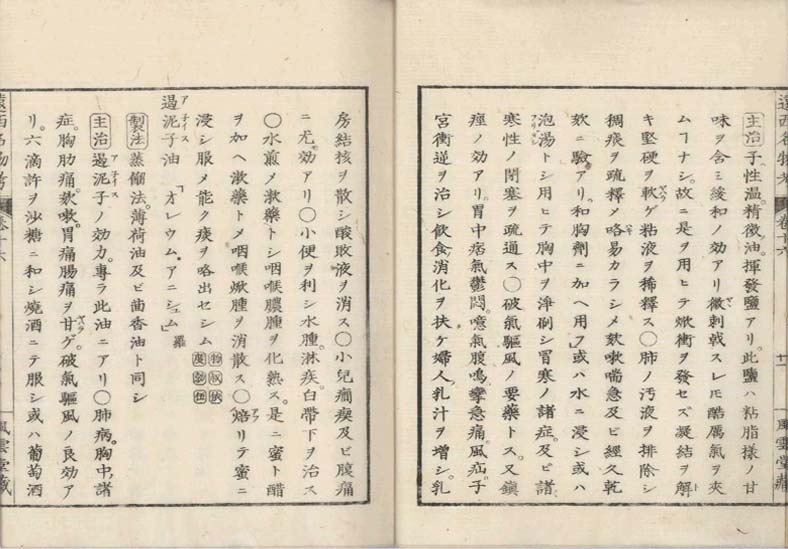 遠西名物考 卷十六 十一 風雲堂藏
主治 子性温。精微油。揮發鹽アリ。此鹽ハ粘脂様ノ甘
味ヲ含ミ緩和ノ効アリ微刺戟スレモ酷厲氣ヲ夾
ムヿナシ。故ニ是ヲ用ヒテ焮衝ヲ發セズ凝結ヲ解
キ堅硬ヲ軟ゲ粘液ヲ稀釋ス〇肺ノ汚液ヲ排除シ
稠痰ヲ疏釋メ咯易カラシメ欬嗽喘急及ビ經久乾
欬ニ驗アリ。和胸劑ニ加ヘ用フ或ハ水ニ浸シ或ハ
泡湯トシ用ヒテ胸中ヲ淨刷シ冒寒ノ諸症。及ビ諸
寒性ノ閉塞ヲ疏通ス〇破氣驅風ノ要藥トス。又鎭
痙ノ効アリ。胃中痞氣鬱悶。噫氣腹鳴攣急痛。風疝。子
宮衝逆ヲ治シ飲食消化ヲ扶ケ婦人乳汁ヲ增シ。乳
房結核ヲ散シ酸敗液ヲ消ス〇小兒癇瘈及ビ腹痛
ニ尤効アリ〇小便ヲ利シ水腫。淋疾。白帶下ヲ治ス
〇水煎メ漱藥トシ咽喉膿腫ヲ化熟ス。是ニ蜜ト醋
ヲ加ヘ漱藥トメ咽喉焮腫ヲ消散ス〇焙リテ蜜ニ
浸シ服メ能ク痰ヲ咯出セシム
遏泥子油 「オレウム。アニシュム」羅
製法 蒸餾法。薄荷油及ビ茴香油ト同シ
主治 遏泥子ノ効力。專ラ此油ニアリ〇肺病。胸中諸
症。胸肋痛。欬嗽。胃痛腸痛ヲ甘ゲ。破氣驅風ノ良効ア
リ。六滴許ヲ沙糖ニ和シ燒酒ニテ服シ或ハ葡萄酒
遠西名物考 卷十六 風雲堂藏